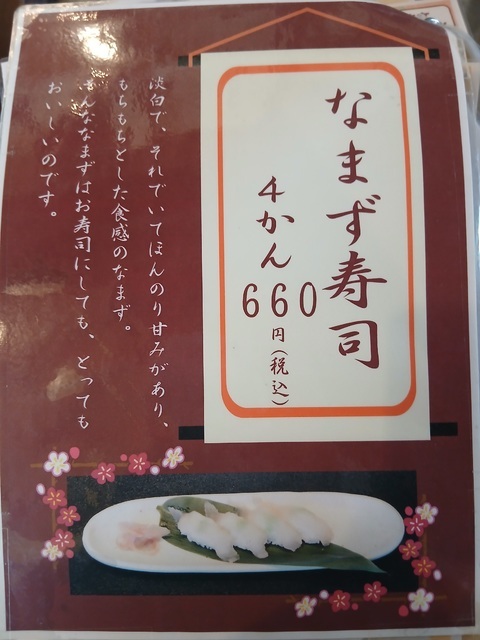 なまず寿司
4かん
660
円(税込)
淡白で、それでいてほんのり甘みがあり、
もちもちとした食感のなまず。
そんななまずはお寿司にしても、とっても
おいしいのです。